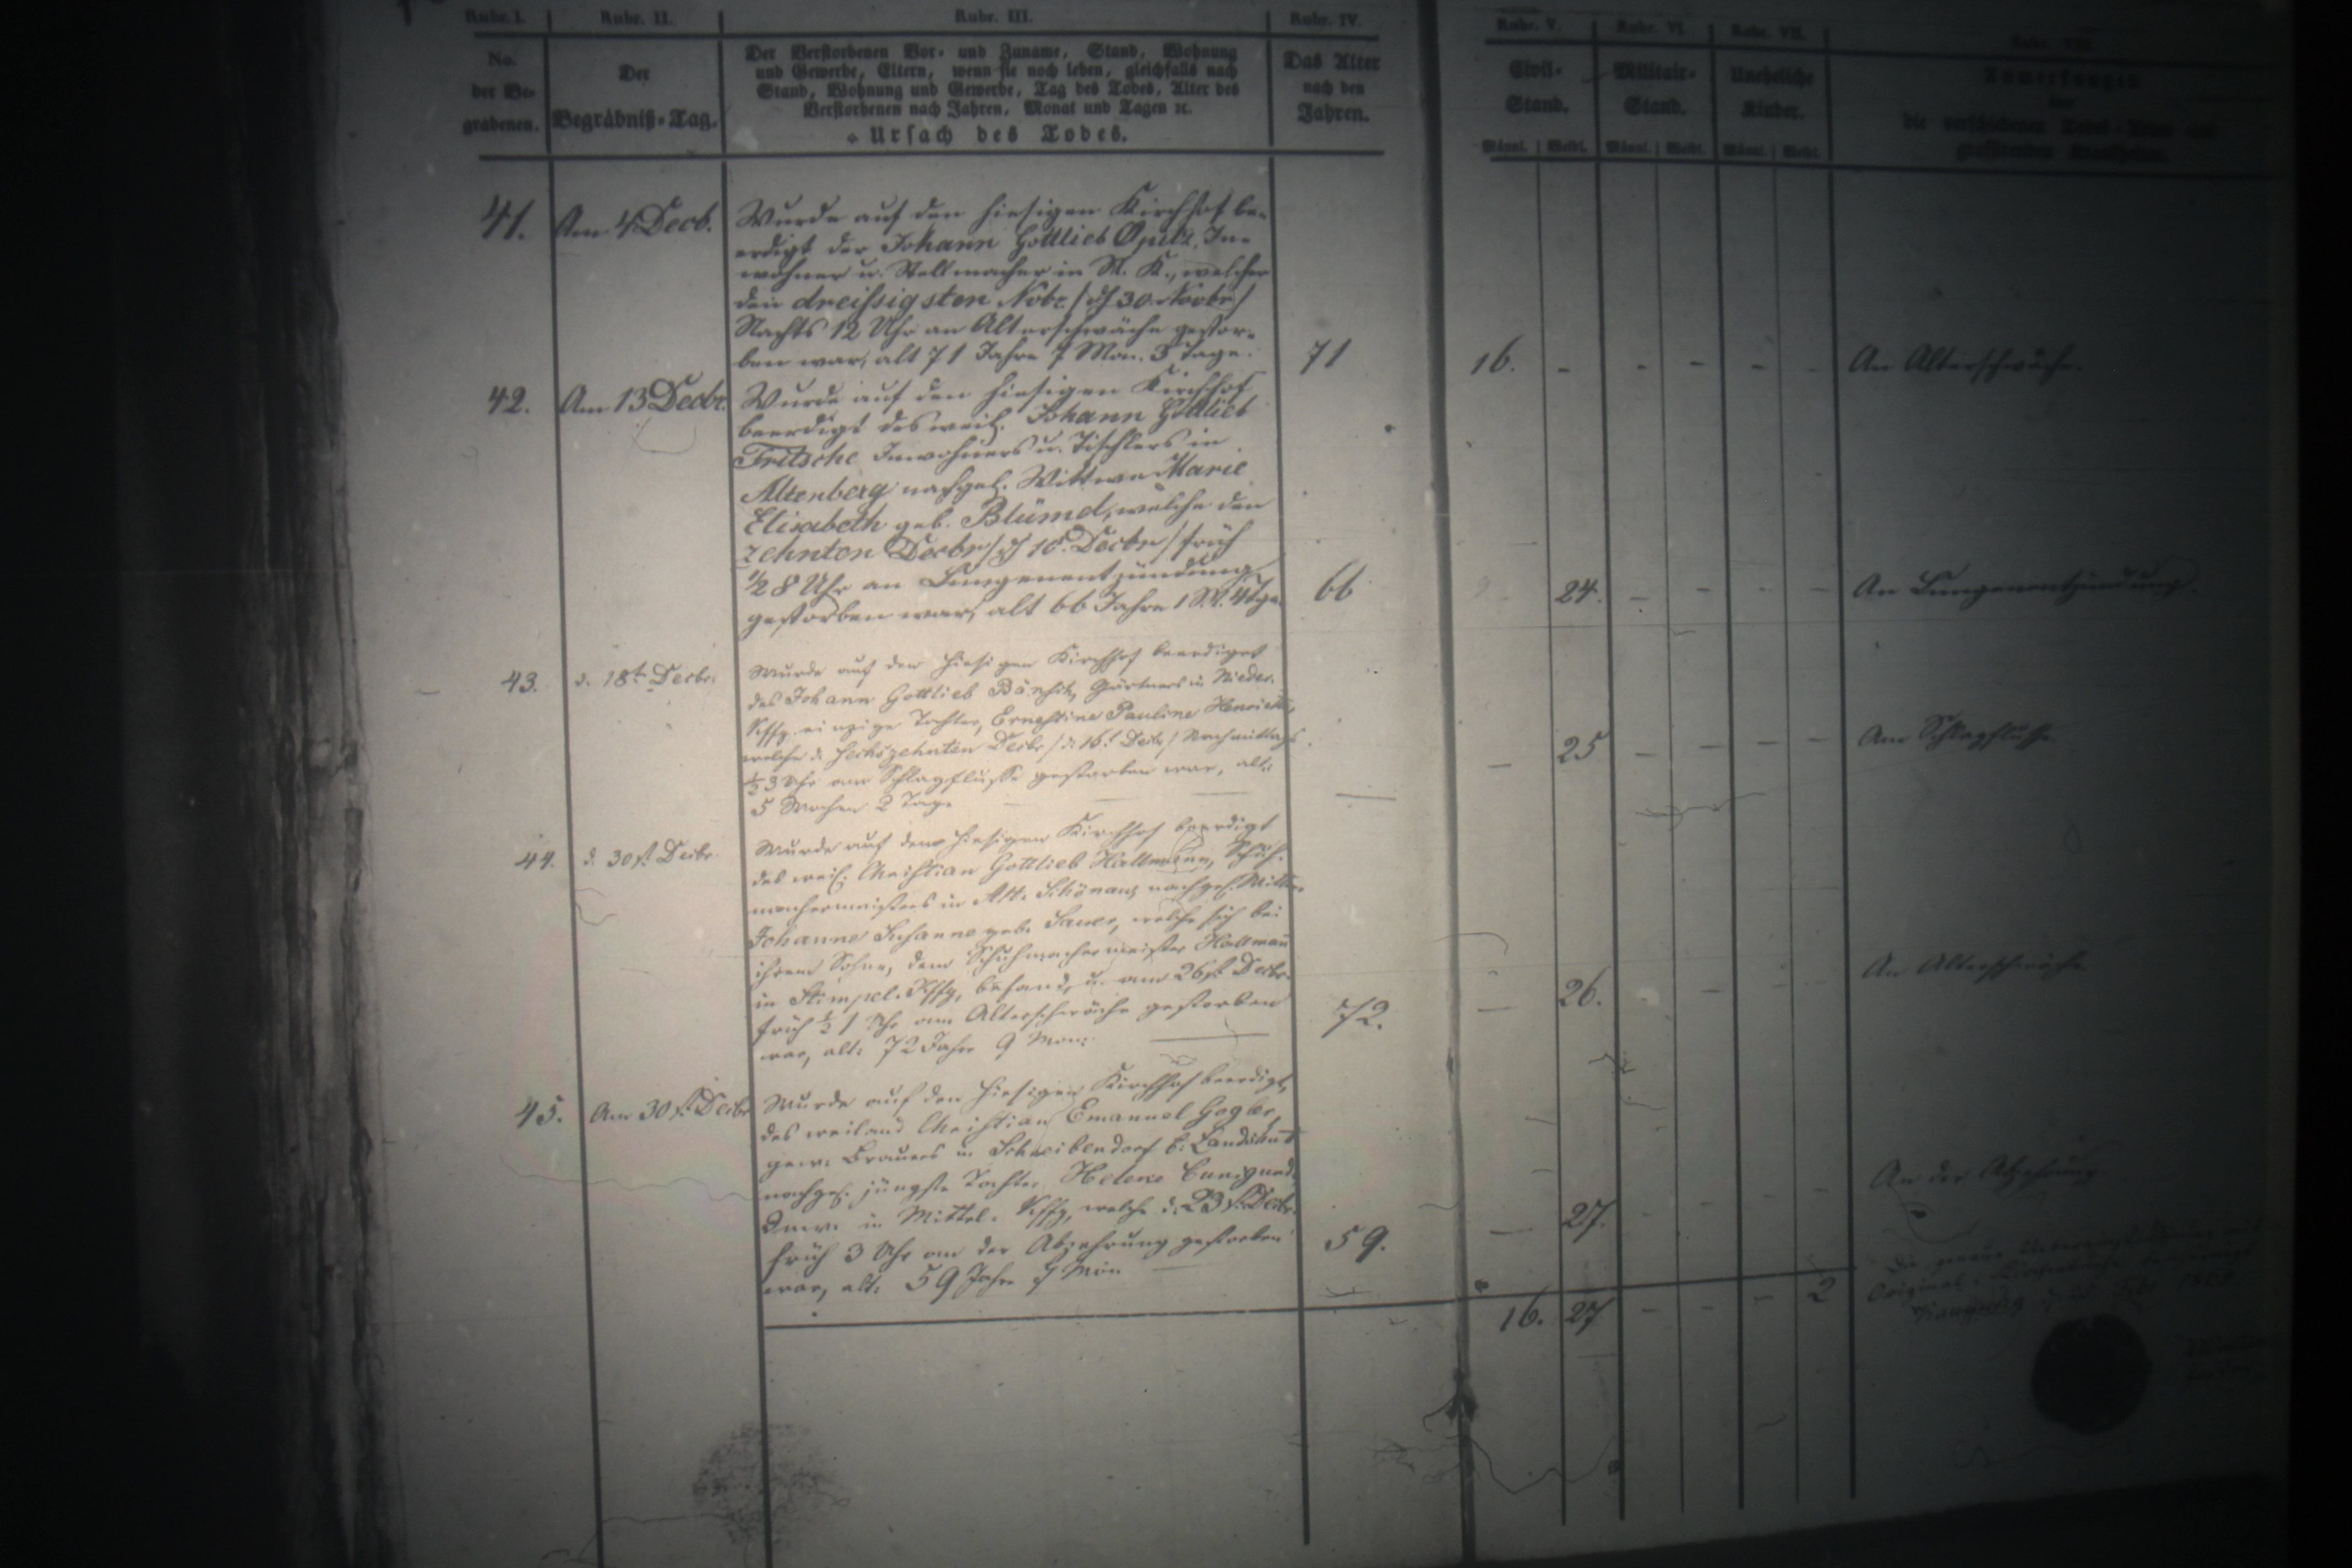 Rubr. I. Rubr. II. Rubr. III. Rubr. IV. Rubr. V. Rubr. VI. Rubr. VII.
No. der Be-grabenen.
Der Begräbniß-Tag.
Der Verstorbenen Vor- und Zuname, Stand, Wohnung
und Gewerbe, Eltern, wenn sie noch leben, gleichfalls nach
Stand, Wohnung und Gewerbe, Tag des Todes, Alter des
Verstorbenen nach Jahren, Monat und Tagen ꝛc.
Ursach des Todes.
Das Alter nach den Jahren.
Civil-Stand.
Militair-Stand.
Uneheliche Kinder.
Anmerkungen
die verschiedenen Todes-Arten und
Männl. Weibl. Männl. Weibl. Männl. Weibl.
41. Am 4 Decb. Wurde auf den hiesigen Kirchhof be-
erdigt der Johann Gottlieb Opitz, In-
wohner u. Stellmacher in St. K., welcher
den dreissigsten Nobr / d 30. Novbr /
Nachts 12 Uhr an Alterschwäche gestor-
ben war, alt 71 Jahre 7 Mon. 3 Tage. 71 16. - - - - - An Alterschwäche.
42. Am 13 Decbr. Wurde auf den hiesigen Kirchhof
beerdigt des weil. Johann Gottlieb
Fritsche Inwohners u. Tischlers in
Altenberg nachgel. Wittwe Marie
Elisabeth geb. Blümel, welche den
zehnten Decbr / d 10. Decbr / früh
1/2 8 Uhr an Lungenentzündung
gestorben war, alt 66 Jahre 1 M. 4 Tge. 66 24. - - - - An Lungenentzündung
43. d. 18t Decbr. Wurde auf den hiesigen Kirchhof beerdiget
des Johann Gottlieb Gärtners in Nieder-
einzige Tochter, Ernestine Pauline Henriette,
welche d. sechszehnten Decbr / d. 16t Decbr / Nachmittags
1/2 3 Uhr am Schlagflusse gestorben war, alt:
5 Wochen 2 Tage — — 25 - - - - Am Schlagflusse
44. d. 30st Decbr. Wurde auf den hiesigen Kirchhof beerdigt
des weil. Christian Gottlieb Hallmann, Schuh-
machermeisters in Alt-Schönau, nachgel. Wittwe
Johanne Susanne geb. Sauer, welche sich bei
ihrem Sohne, dem Schuhmachermeister Hallmann
in befand, u. am 26st Decbr.
früh 1/2 1 Uhr an Alterschwäche gestorben
war, alt: 72 Jahre 9 Mon: 72. — 26. An Alterschwäche
45. Am 30st Decbr Wurde auf den hiesigen Kirchhof beerdigt,
des weiland Christian Emanuel
gew. Brauers in Schreibendorf b. Landshut
nachgel. jüngste Tochter Helene
Inw. in Mittel- welche d. 23st. Decbr.
früh 3 Uhr an der Abzehrung gestorben
war, alt: 59 Jahre 7 Mon 59. — 27. - - - - An der Abzehrung
16. 27 - - - 2